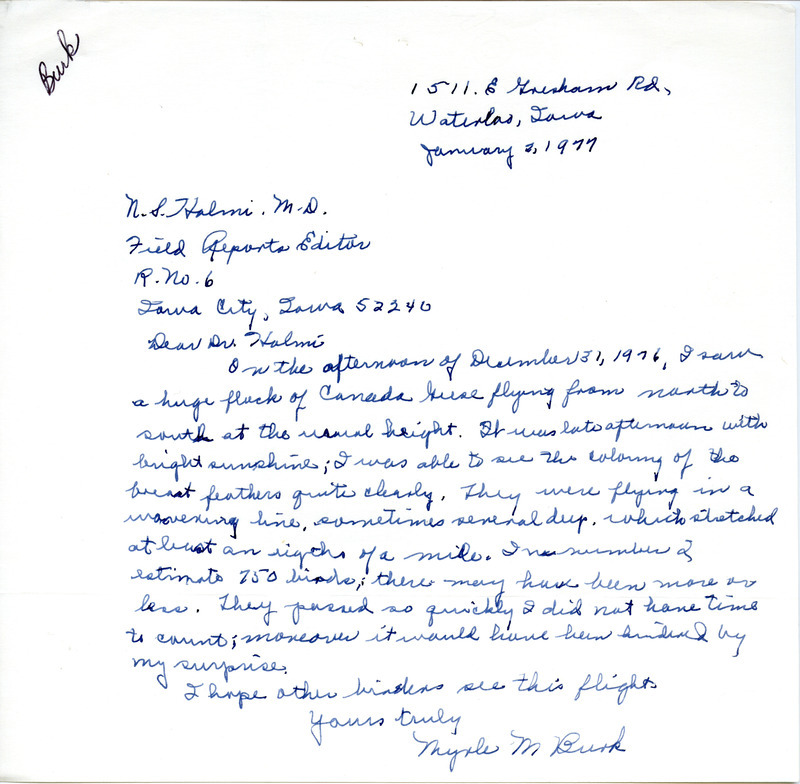 Burk
1511. E Gresham Rd,
Waterloo, Iowa
January 3, 1977
N. S. Halmi. M.D.
Field Reports Editor
R. No. 6
Iowa City, Iowa 52240
Dear Dr. Halmi
On the afternoon of December 31, 1976, I saw
a huge flock of Canada Geese flying from north to
south at the usual height. It was late afternoon with
bright sunshine; I was able to see the coloring of the
breast feathers quite clearly. They were flying in a
wavering line, sometimes several deep, which stretched
at least an eigths of a mile. In number I
estimate 750 birds; there may have been more or
less. They passed so quickly I did not have time
to count; moreover it would have been hindered by
my surprise.
I hope other birders see this flight.
Yours truly
Myrle M Burk